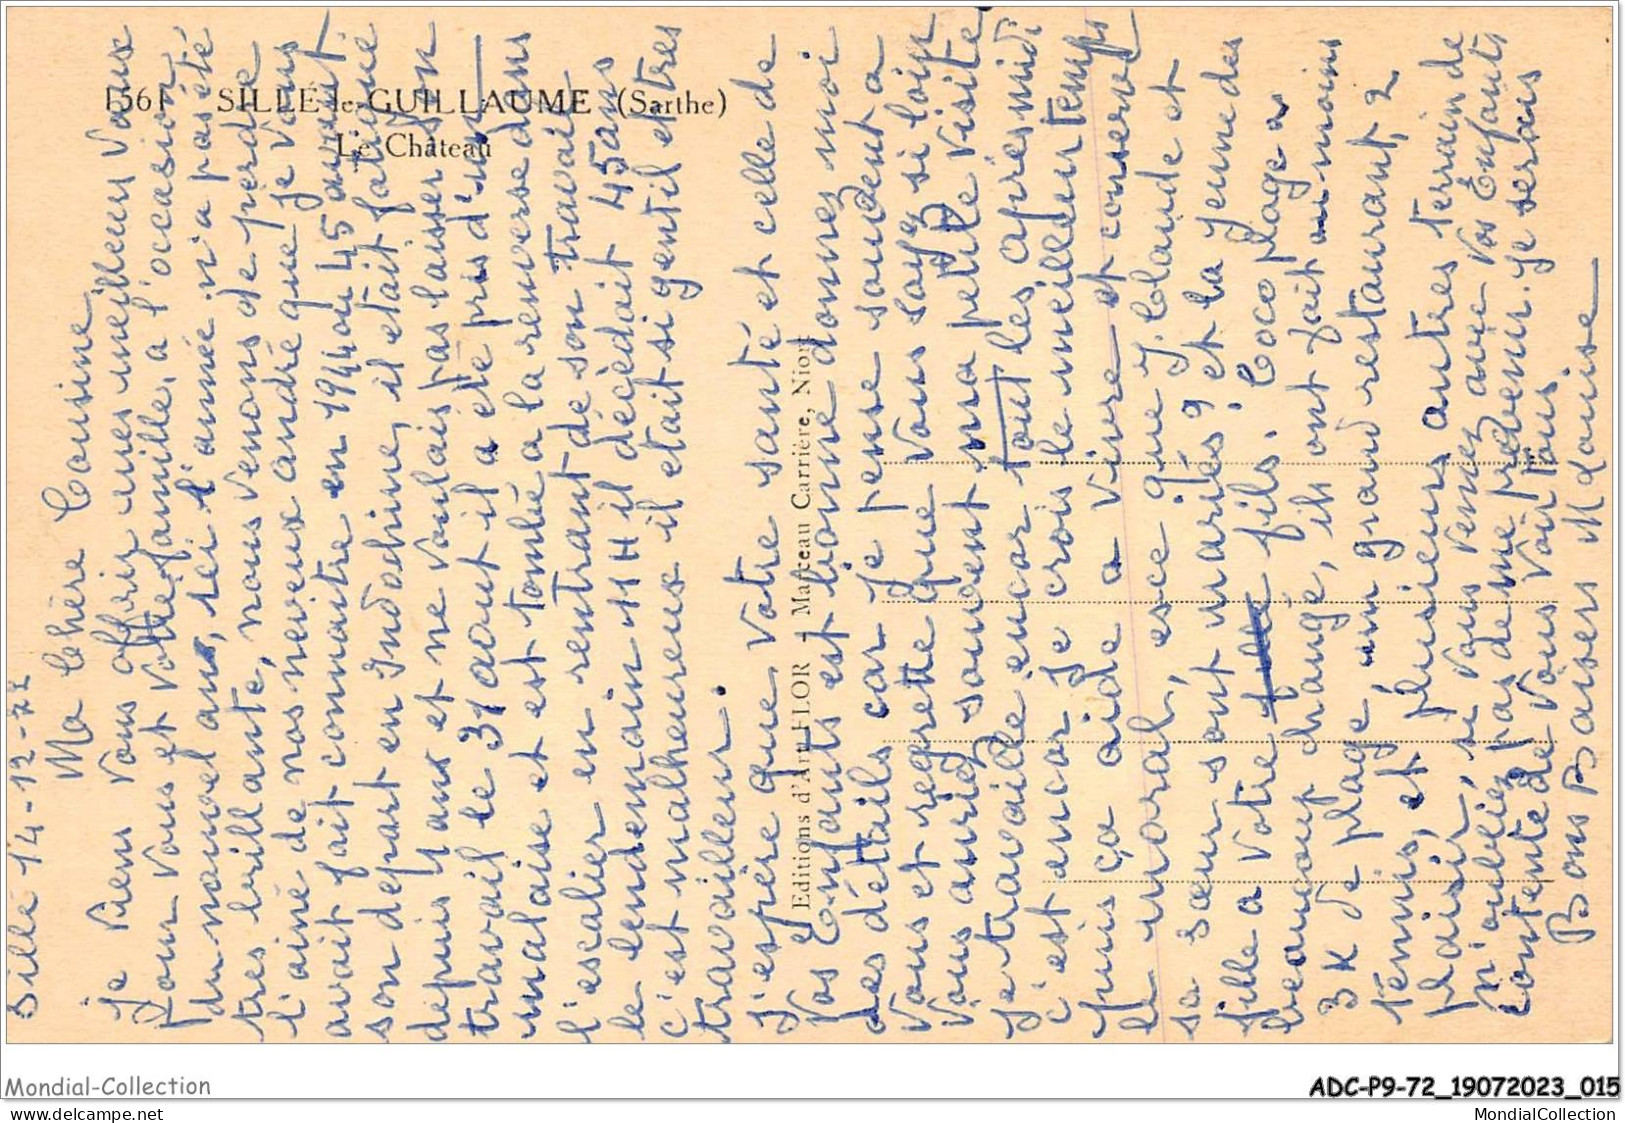 1561 - SILLÉ-le-GUILLAUME (Sarthe)
Le Château
Editions d'Art FLOR - Marceau Carrière, Niort
Sillé 14-12-72
Ma Chère Cousine
Je viens vous offrir mes meilleurs vœux
pour vous et votre famille, a l'occasion
du nouvel ans, ici l'année n'a pas été
tres brillante, nous venons de perdre
l'ainé de nos neveux andré que je vous
avait fait connaitre en 1944 ou 45 avant
son depart en Indochine, il etait fatigué
depuis 4 ans et ne voulais pas laisser son
travail le 31 aout il a été pris d'un
malaise et est tombé a la renverse dans
l'escalier en rentrant de son travail
le lendemain 11 H il décèdait 45 ans
c'est malheureux il etait si gentil et tres
travailleur.
J'espère que votre santé et celle de
vos Enfants est bonne donnes moi
des détails car je pense souvent a
vous et regrette que vous soyez si loin
vous auriez souvent ma petite visite
Je travaille encor tout les apriesmidi
c'est encor je crois le meilleur temps
puis ça aide a vivre et conserver
le moral, esce que J. Claude et
sa sœur sont mariés? et la jeune des
fille a votre fils. Coco plage a
beaucoup changé, ils ont fait au moins
3 K de plage, un grand restaurant, 2
tennis, et plusieurs autres terrain de
plaisir, si vous venez avec vos Enfants
n'oubliez pas de me prévenir. Je serais
contente de vous voir tous.
Bons Baisers M Louise
Mondial-Collection
ADC-P9-72_19072023_015
www.delcampe.net
MondialCollection